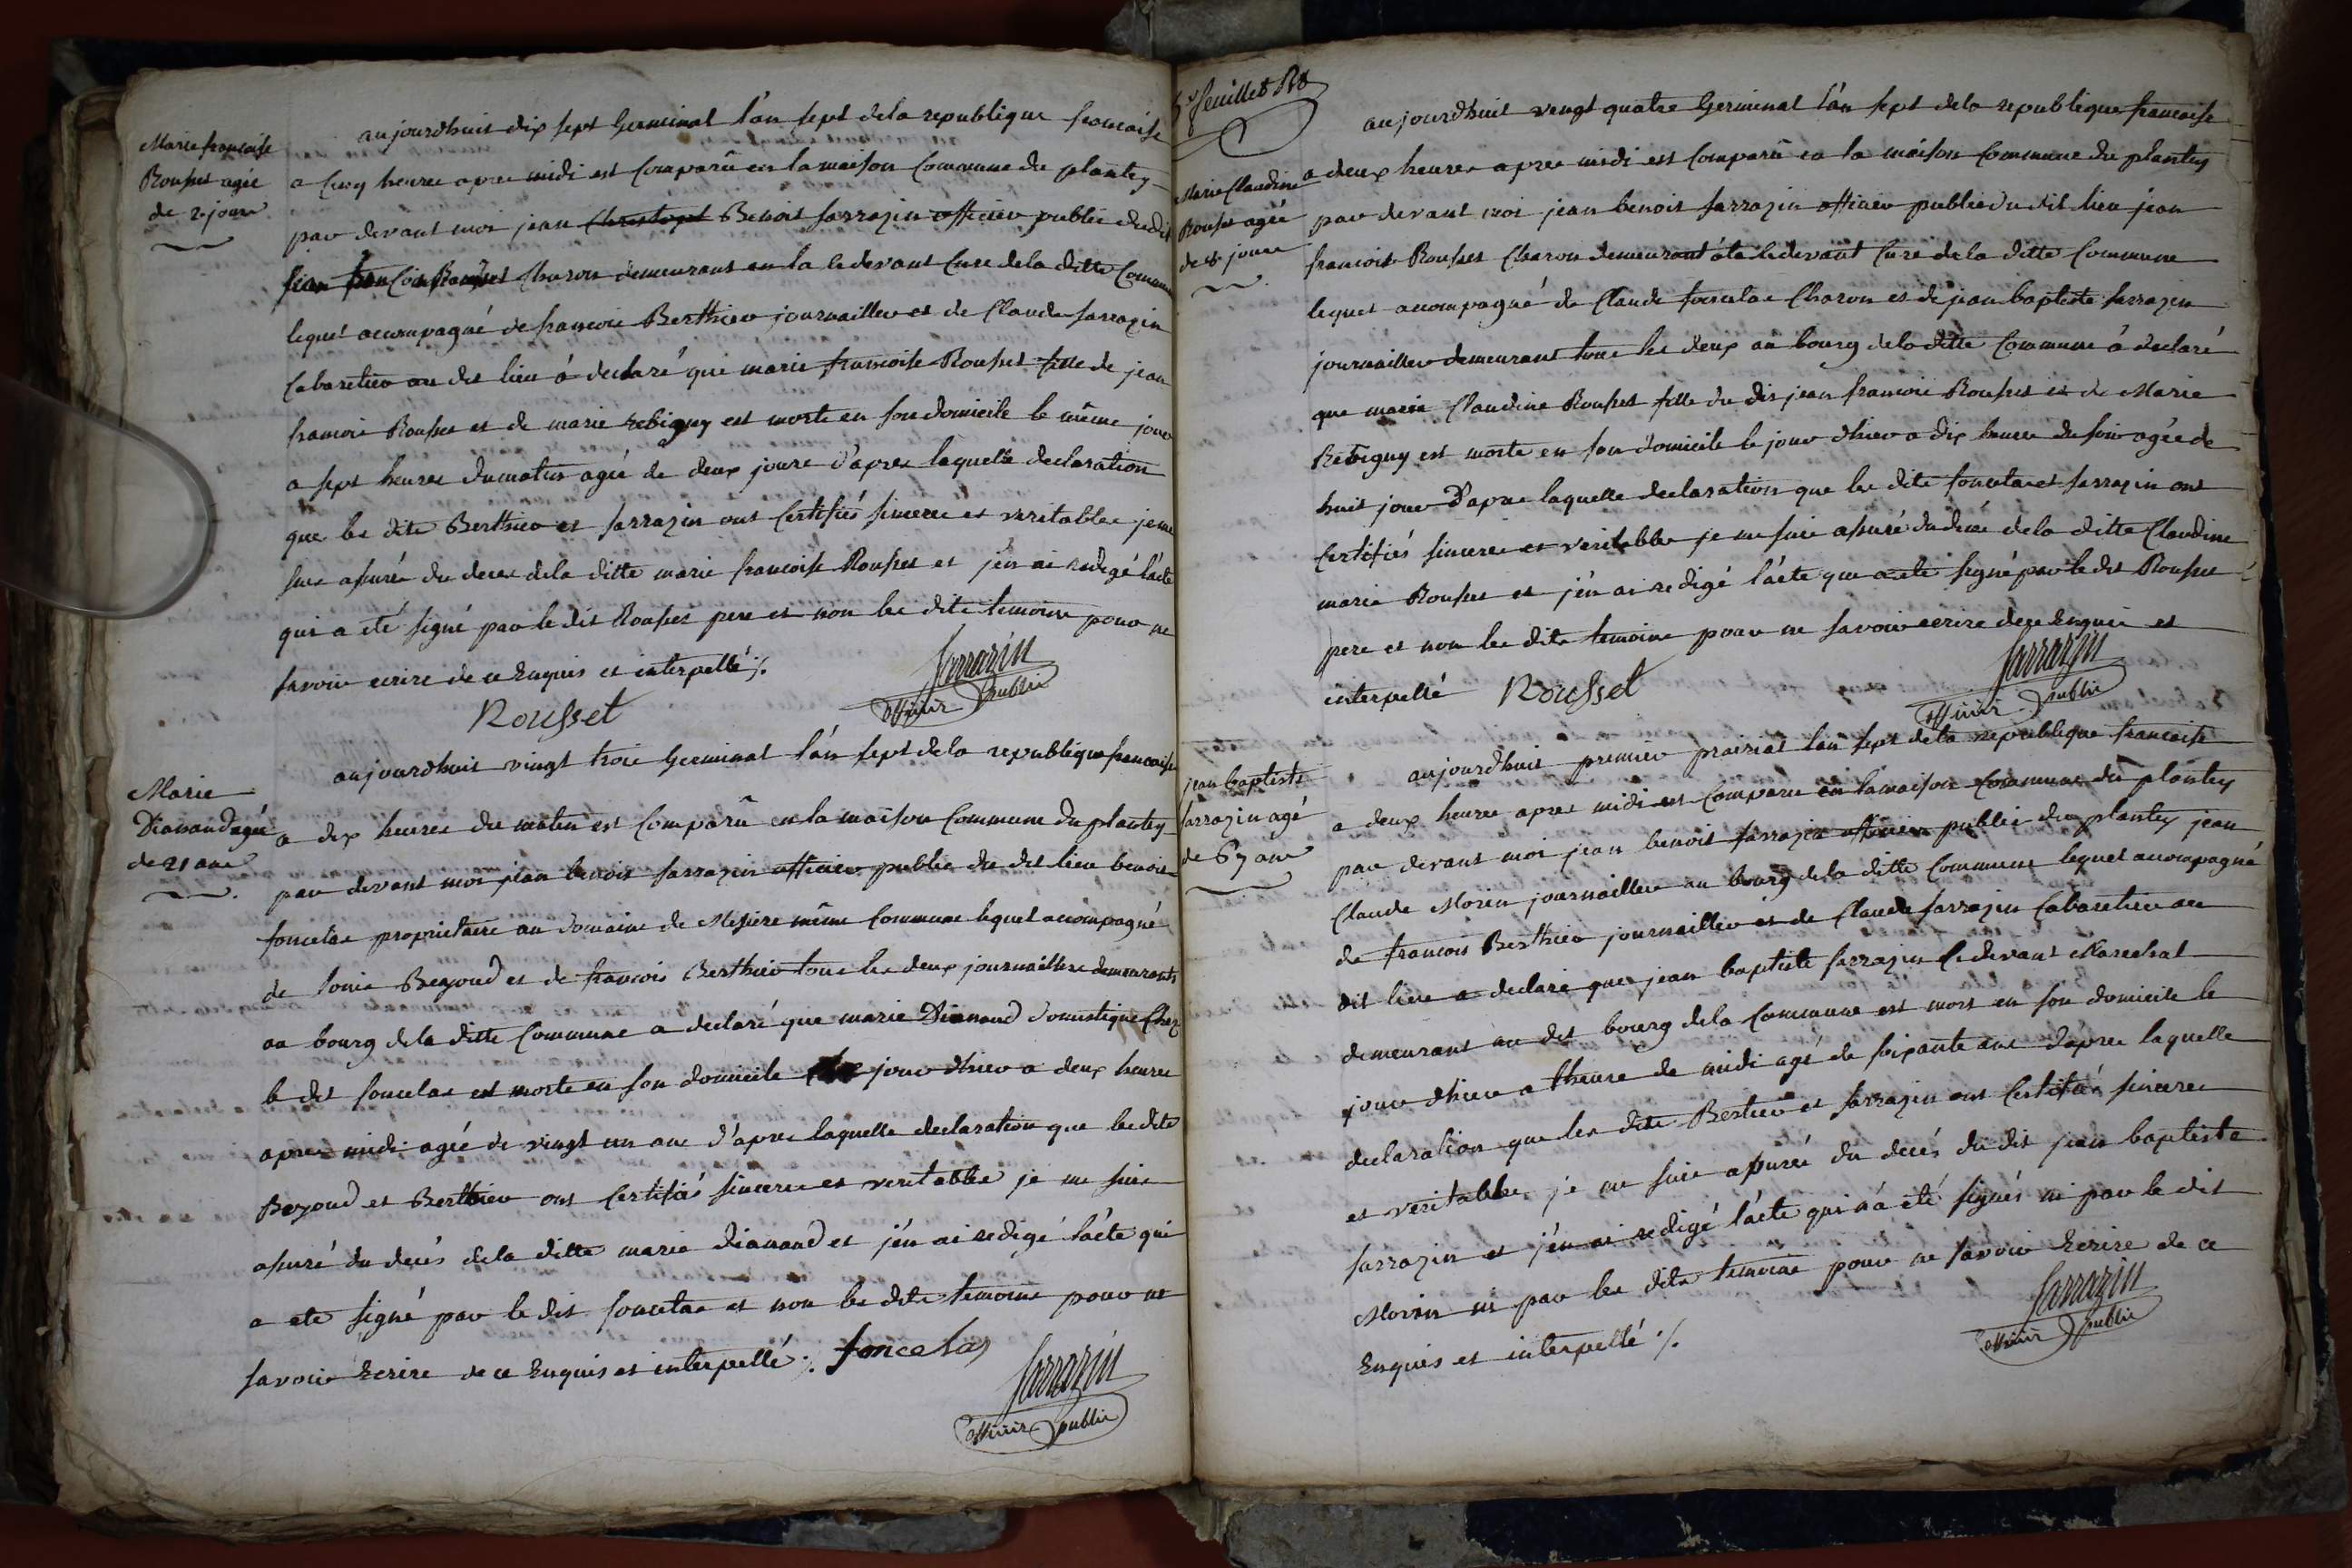 Marie francoise
Rousset agée
de 2 jours
aujourdhuit dix sept Germinal l'an sept dela republique francaise
a cinq heures apres midi est Comparû en la maison Commune du plantey
par devant moi jean Christophe Benoit sarrazin officier public dudit
jean francois Rousset Charon demeurant en la cidevant Cure dela ditte Commune
lequel accompagné de francois Berthier journaillier et de Claude sarrazin
Cabaretier au dit lieu á declaré que marie francoise Rousset fille de jean
francois Rousset et de marie rebigny est morte en son domicile le même jour
a sept heures dumatin agée de deux jours d'apres laquelle declaration
que les dits Berthier et sarrazin ont Certifiés sincere et veritable je me
suis assurée du deces dela ditte marie francoise Rousset et j'en ai redigé l'acte
qui a eté signé par le dit Rousset pere et non les dits temoins pour ne
savoir ecrire de ce Enquis et interpellé ./.
Rousset
sarrazin
officier public
Marie
Dianand agée
de 21 ans
aujourdhuit vingt trois Germinal l'an sept dela republique francaise
a dix heures du matin est Comparû en la maison Commune du plantey
par devant moi jean benoit sarrazin officier public du dit lieu benoit
foncelas proprietaire au domaine de Messire même Commune lequel accompagné
de louis Begoud et de francois Berthier tous les deux journailliers demeurants
au bourg dela ditte Commune a declaré que marie Dianand domestique Chez
le dit foncelas est morte en son domicile jour dhier a deux heures
apres midi agée de vingt un ans d'apres laquelle declaration que les dits
Begoud et Berthier ont Certifiés sincere et veritable je me suis
assuré du decés dela ditte marie dianand et j'en ai redigé l'acte qui
a eté signé par le dit foncelas et non les dits temoins pour ne
savoir Ecrire de ce Enquis et interpellé ./. foncelas
sarrazin
officier public
5e feuillet Rto
Marie Claudine
Rousset agée
de 8 jours
aujourdhuit vingt quatre Germinal l'an sept dela republique francaise
a deux heures apres midi est Comparû en la maison Commune du plantey
par devant moi jean benoit sarrazin officier public du dit lieu jean
francois Rousset Charon demeurant á la cidevant Cure dela ditte Commune
lequel accompagné de Claude foncelas Charon et de jean baptiste sarrazin
journaillier demeurant tous les deux au bourg dela ditte Commune á declaré
que marie Claudine Rousset fille du dit jean francois Rousset et de Marie
Rebigny est morte en son domicile le jour dhier a dix heures du soir agée de
huit jours D'apres laquelle declaration que les dits foncelas et sarrazin ont
Certifiés sincere et veritable je me suis assuré du deces dela ditte Claudine
marie Rousset et j'en ai redigé l'acte qui a eté signé par le dit Rousset
pere et non les dits temoins pour ne savoir ecrire de ce Enquis et
interpellé Rousset
sarrazin
officier public
jean baptiste
sarrazin agé
de 67 ans
aujourdhuit premier prairial l'an sept dela republique francaise
a deux heures apres midi est Comparu en la maison Commune du plantey
par devant moi jean benoit sarrazin officier public du plantey jean
Claude Morin journaillier au bourg dela ditte Commune lequel accompagné
de francois Berthier journaillier et de Claude sarrazin Cabaretier au
dit lieu a declaré que jean baptiste sarrazin Cidevant Marechal
demeurant au dit bourg dela Commune est mort en son domicile le
jour dhier a l'heure de midi agé de soixante ans d'apres laquelle
declaration que les dits Bertier et sarrazin ont Certifiés sinceres
et veritable, je me suis assurée du decés du dit jean baptiste
sarrazin et j'en ai redigé l'acte qui n'a eté signés ni par le dit
Morin ni par les dits temoins pour ne savoir Ecrire de ce
Enquis et interpellé ./.
sarrazin
officier public